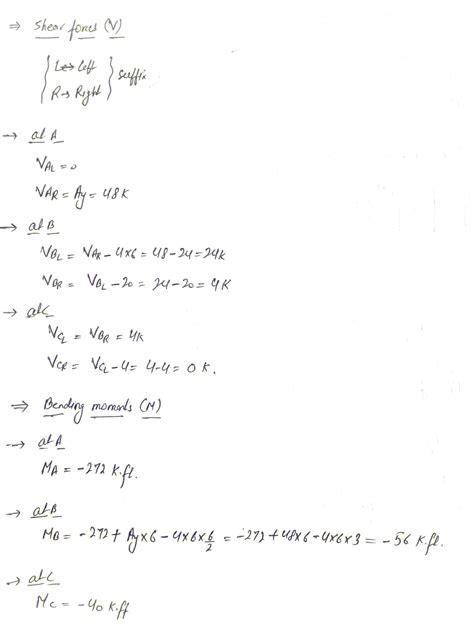 ⇒ Shear forces (V)
{ L → Left
R → Right } suffix
→ at A
V_AL = 0
V_AR = Ay = 48 K
→ at B
V_BL = V_AR - 4×6 = 48 - 24 = 24K
V_BR = V_BL - 20 = 24 - 20 = 4K
→ at C
V_CL = V_BR = 4K
V_CR = V_CL - 4 = 4-4 = 0 K.
⇒ Bending moments (M)
→ at A
M_A = -272 K.ft.
→ at B
M_B = -272 + Ay×6 - 4×6×6/2 = -272 + 48×6 - 4×6×3 = -56 K.ft.
→ at C
M_C = -40 K.ft